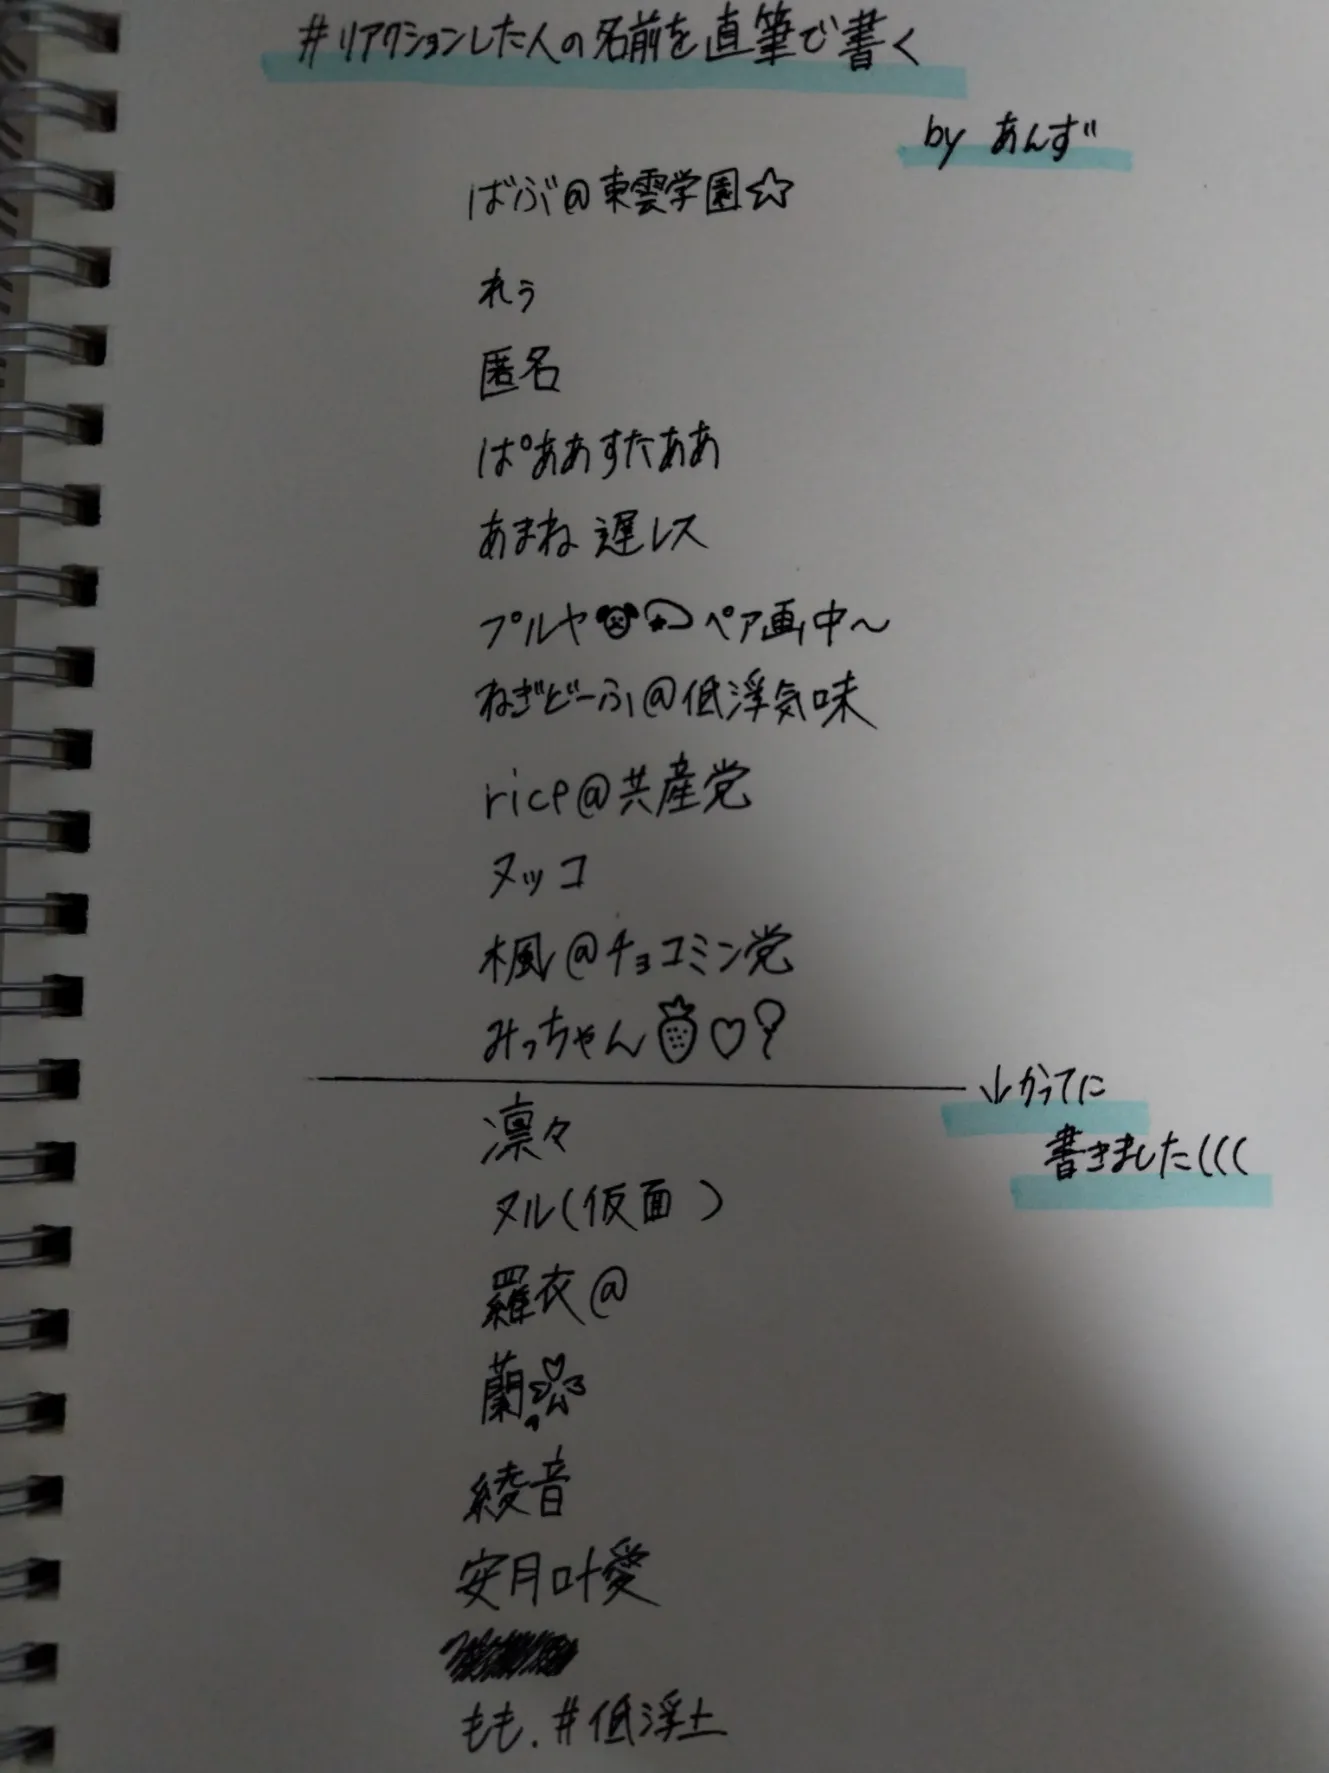 #リアクションした人の名前を直筆で書く
by あんず
ばぶ@東雲学園☆
れぅ
匿名
ぱああすたああ
あまね 遅レス
プルヤ ペア画中〜
ねぎどーふ@低浮気味
rice@共産党
ヌッコ
楓@チョコミン党
みっちゃん🍍♡🎈
↓かってに
書きました(((
凛々
ヌル(仮面 )
羅衣@
蘭
綾音
安月叶愛
もも.#低浮上